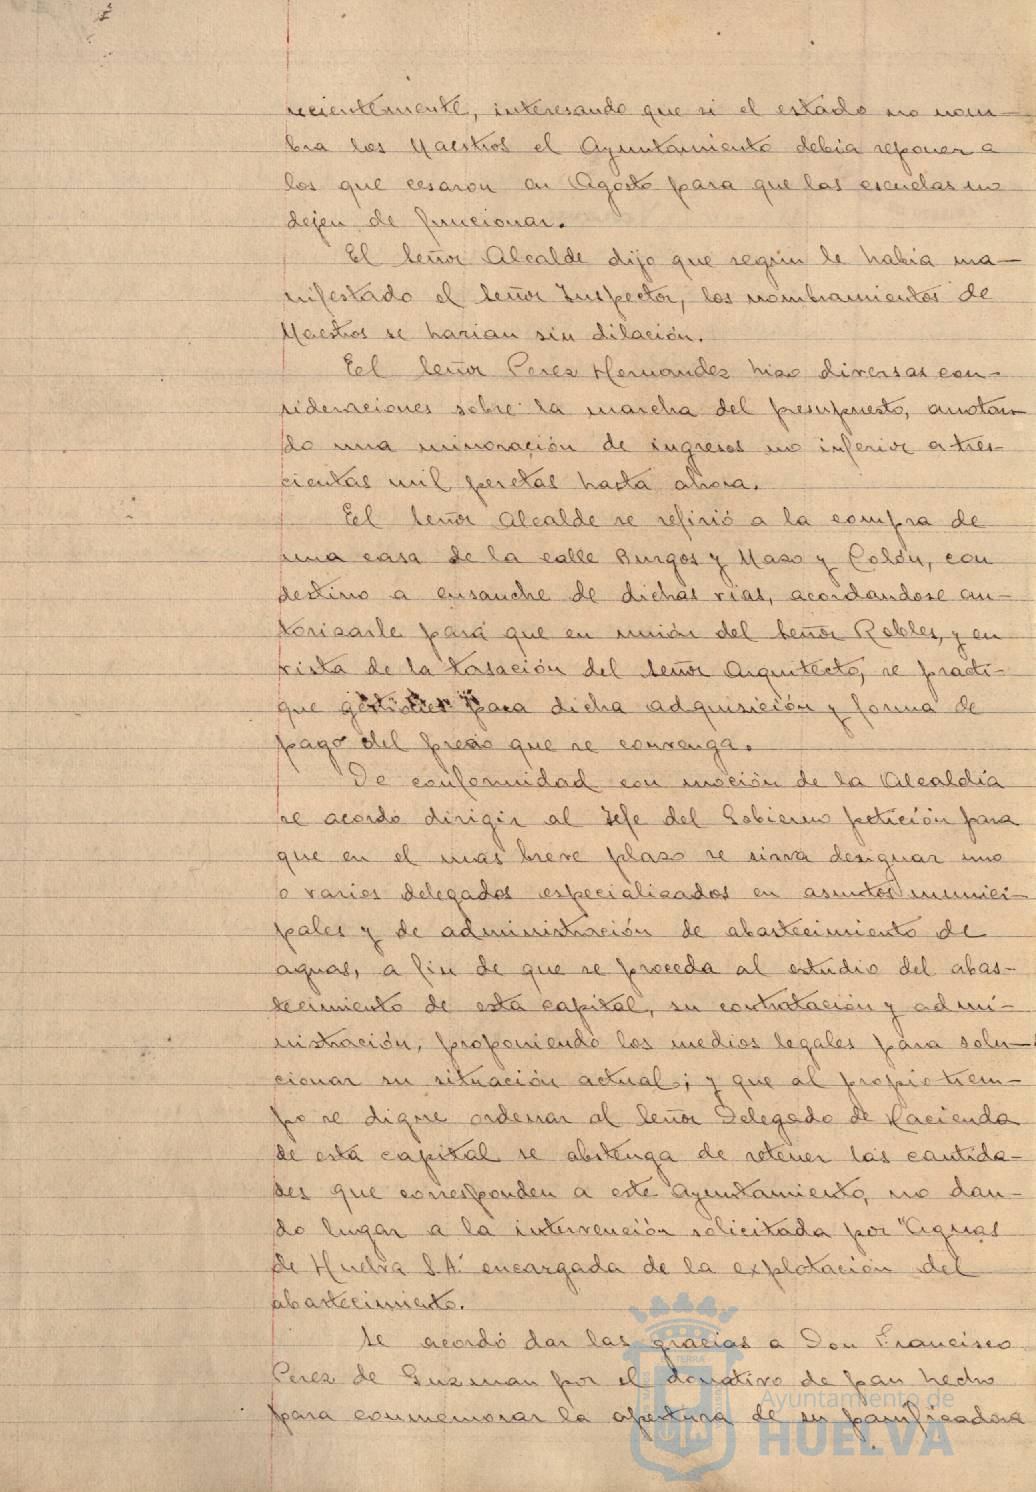 recientemente, interesando que si el estado no nom-
bra los Maestros el Ayuntamiento debia reponer a
los que cesaron en Agosto para que las escuelas no
dejen de funcionar.
El Señor Alcalde dijo que según le habia ma-
nifestado el Señor Inspector, los nombramientos de
Maestros se harian sin dilación.
El Señor Perez Hernandez hizo diversas con-
sideraciones sobre la marcha del presupuesto, anotan-
do una minoración de ingresos no inferior a tres-
cientas mil pesetas hasta ahora.
El Señor Alcalde se refirió a la compra de
una casa de la calle Burgos y Mazo y Colón, con
destino a ensanche de dichas vias, acordandose au-
torizarle para que en unión del Señor Robles, y en
vista de la tasación del Señor Arquitecto, se practi-
que gestiones para dicha adquisición y forma de
pago del precio que se convenga.
De conformidad con moción de la Alcaldía
se acordo dirigir al Jefe del Gobierno petición para
que en el mas breve plazo se sirva designar uno
o varios delegados especializados en asuntos munici-
pales y de administración de abastecimiento de
aguas, a fin de que se proceda al estudio del abas-
tecimiento de esta capital, su contratación y admi-
nistración, proponiendo los medios legales para solu-
cionar su situación actual; y que al propio tiem-
po se digne ordenar al Señor Delegado de Hacienda
de esta capital se abstenga de retener las cantida-
des que corresponden a este Ayuntamiento, no dan-
do lugar a la intervención solicitada por "Aguas
de Huelva S.A." encargada de la explotación del
abastecimiento.
Se acordó dar las gracias a Don Francisco
Perez de Guzman por el donativo de pan hecho
para conmemorar la apertura de su panificadora
Ayuntamiento de
HUELVA